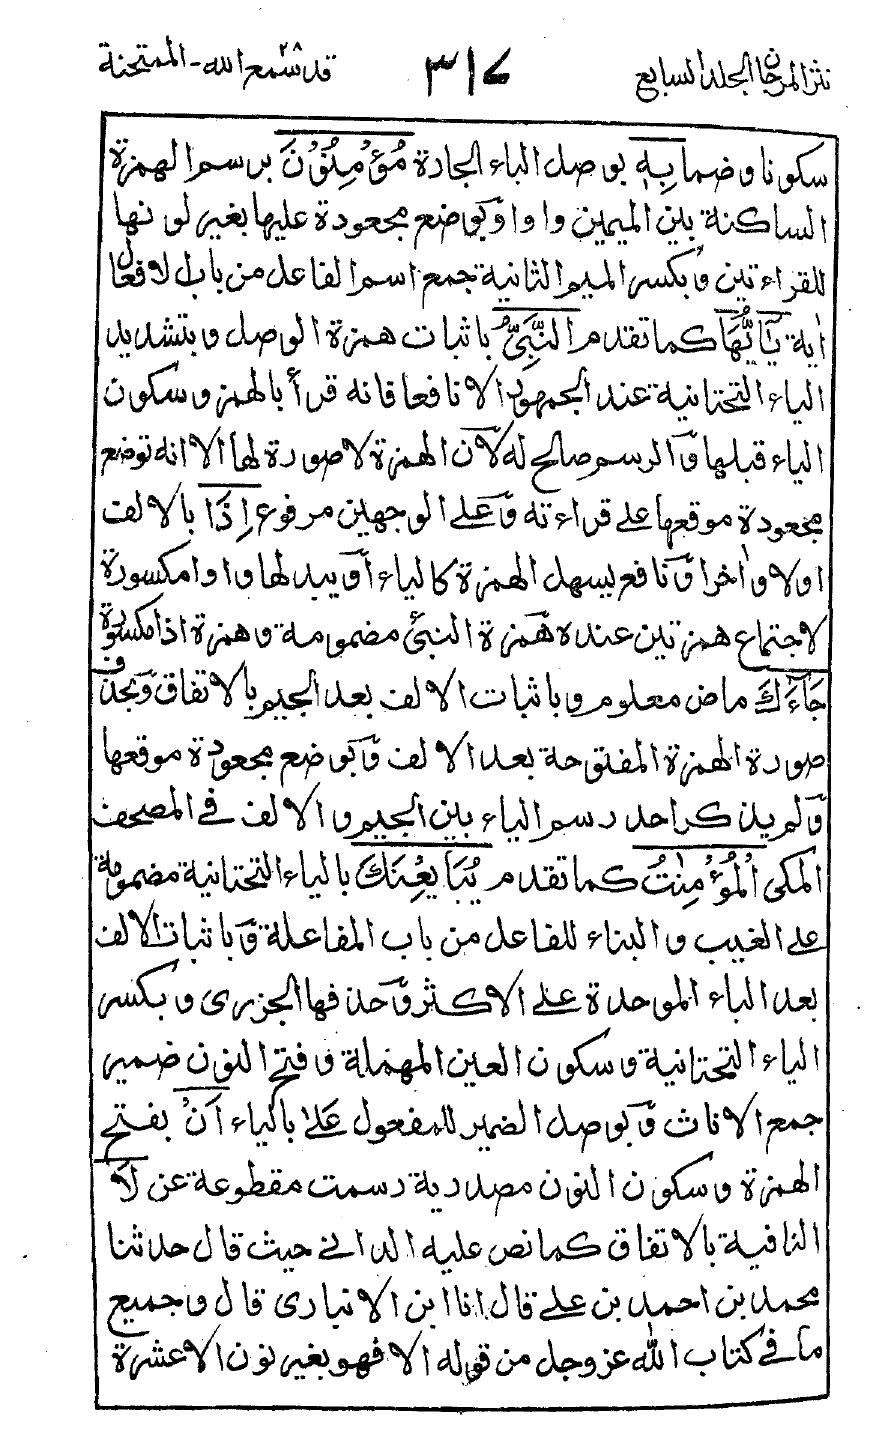 نثر المرجان الجلد السابع
٣١٧
قد سمع الله ٢٨ - الممتحنة
سكونا وضما بِهٖ بوصل الباء الجارة مُؤْمِنُوْنَ برسم الهمزة
الساكنة بين الميمين واوا وَبوضع مجعودة عليها بغير لونها
للقراءتين وَبكسر الميم الثانية جمع اسم الفاعل من باب الافعال
اٰية يٰٓاَيُّهَا كما تقدم النَّبِيُّ باثبات همزة الوصل وبتشديد
الياء التحتانية عند الجمهور الا نافعا فانه قرأ بالهمز وسكون
الياء قبلها وَالرسم صالح له لاَن الهمزة لا صورة لها الا انه توضع
مجعودة موقعها على قراءته وَعلى الوجهين مرفوع اِذَا بالالف
اولا واٰخرا وَنافع يسهل الهمزة كالياء اَو يبدلها واوا مكسورة
لاجتماع همزتين عنده هَمزة النبئ مضمومة وهمزة اذا مكسورة
جَآءَكَ ماض معلوم وباثبات الالف بعد الجيم بالاتفاق وَبحذف
صورة الهمزة المفتوحة بعد الالف وَبوضع مجعودة موقعها
وَلم يذكر احد رسم الياء بين الجيم والالف في المصحف
المكى الْمُؤْمِنٰتُ كما تقدم يُبَايِعْنَكَ بالياء التحتانية مضمومة
على الغيب والبناء للفاعل من باب المفاعلة وَباثبات الالف
بعد الباء الموحدة على الاكثر وَحذفها الجزرى وبكسر
الياء التحتانية وسكون العين المهملة وفتح النون ضمير
جمع الاناث وَبوصل الضمير للمفعول عَلٰٓى بالياء اَنْ بفتح
الهمزة وسكون النون مصدرية رسمت مقطوعة عن لَّا
النافية بالاتفاق كما نص عليه الدانى حيث قال حدثنا
محمد بن احمد بن على قال انا ابن الانبارى قال وجميع
ما فى كتاب الله عز وجل من قوله الا فهو بغير نون الا عشرة